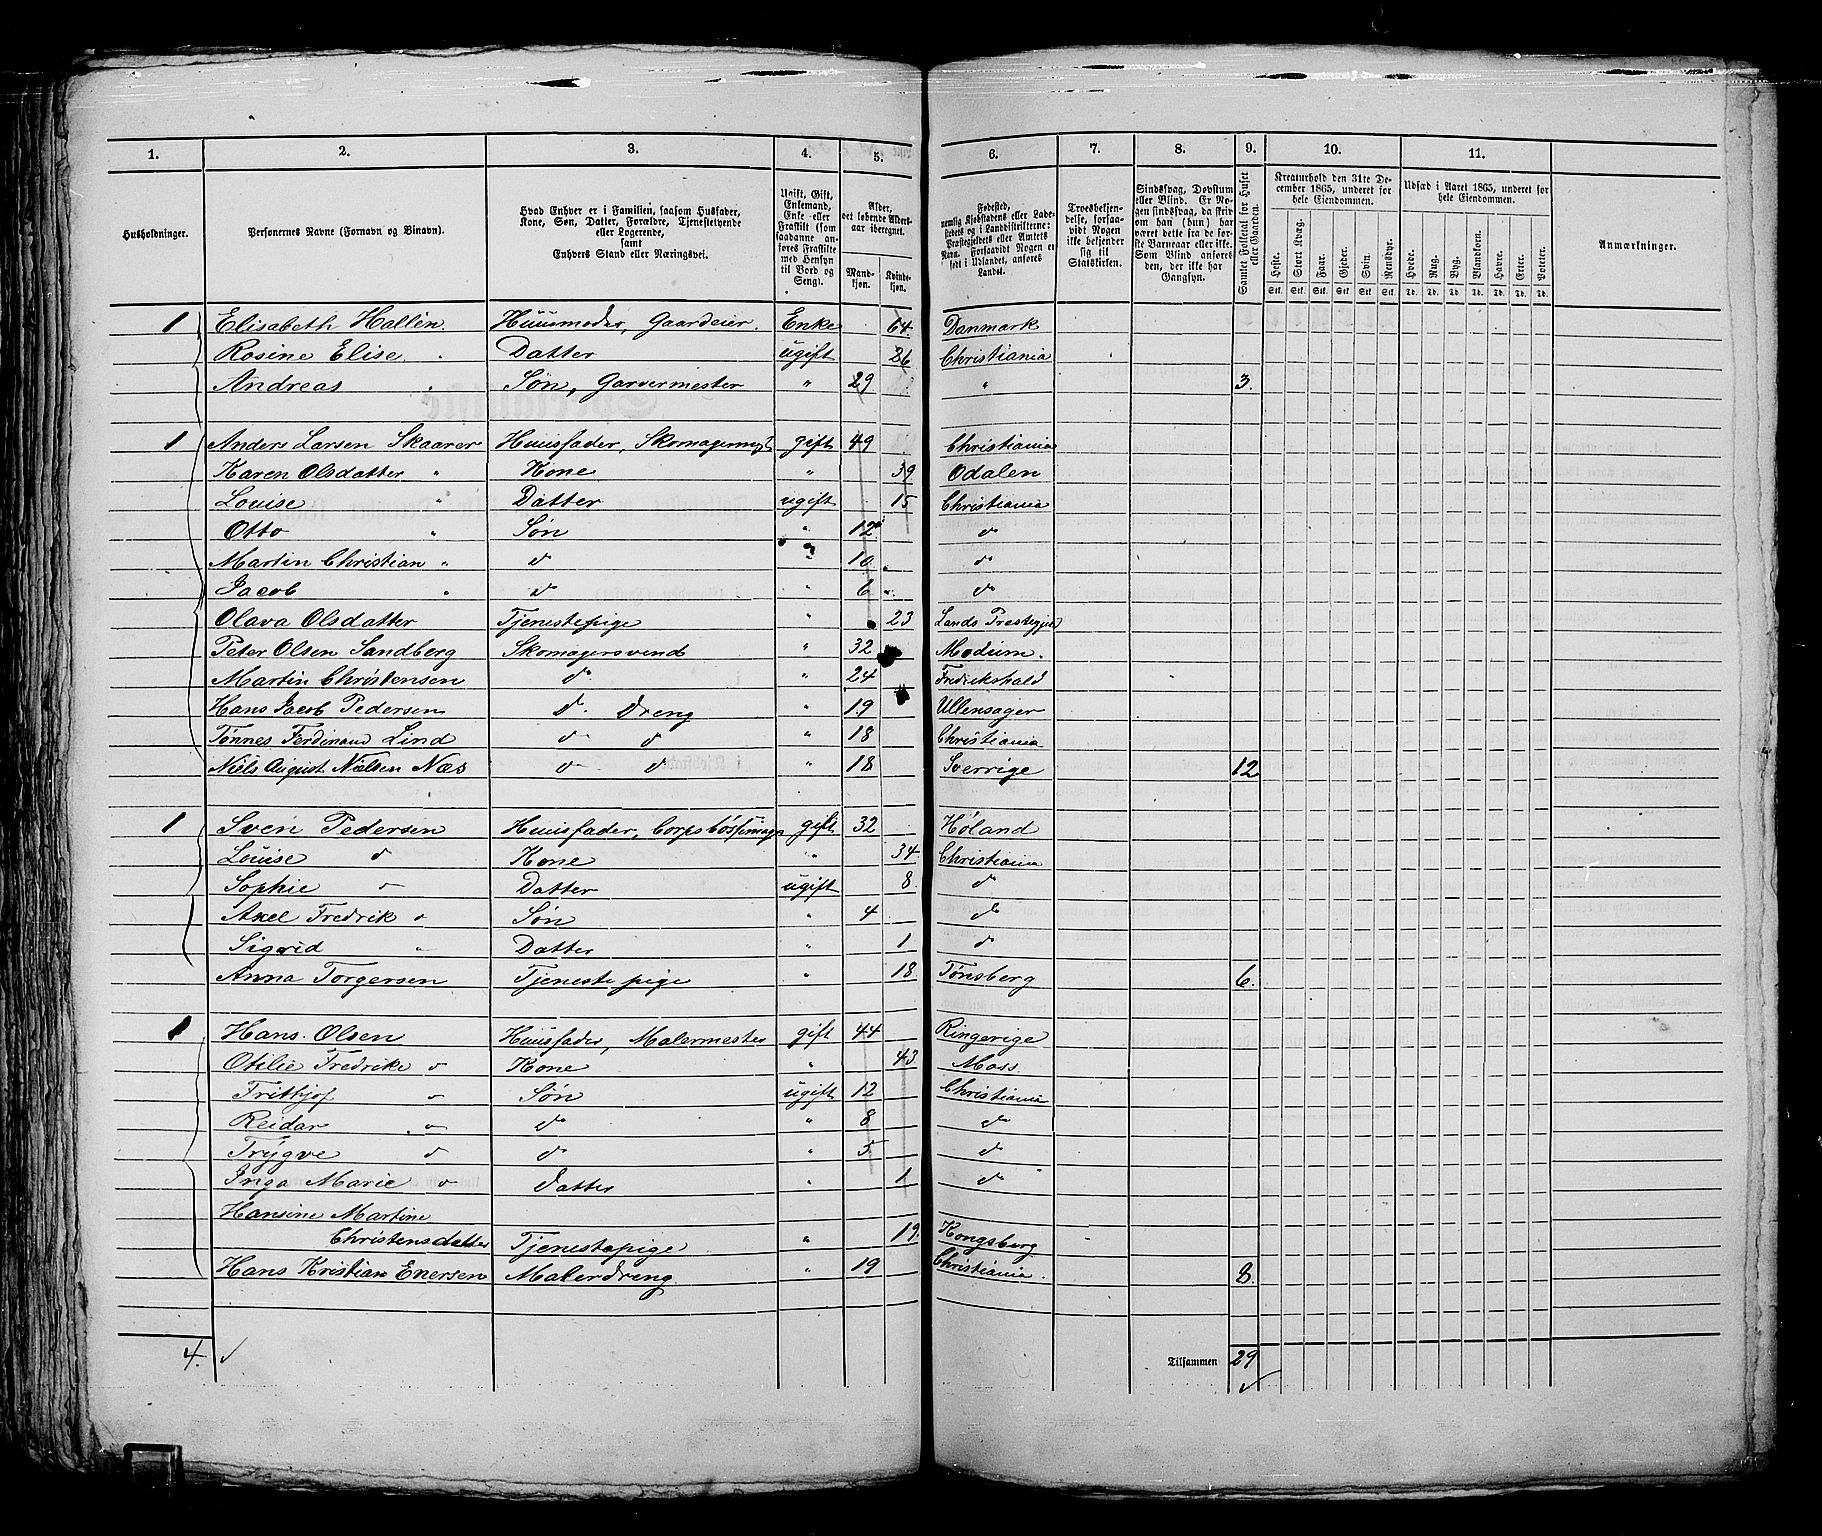 1. 2. 3. 4. 5. 6. 7. 8. 9. 10. 11.
Husholdninger.
Personernes Navne (Fornavn og Binavn).
Hvad Enhver er i Familien, saasom Husfader,
Kone, Søn, Datter, Forældre, Tjenestetyende
eller Logerende,
samt
Enhvers Stand eller Næringsvei.
Ugift, Gift,
Enkemand,
Enke eller
Fraskilt (som
saadanne an-
føres Fraskilte
med Hensyn
til Bord og
Seng).
Alder,
det løbende Alders-
aar iberegnet.
Mand-
kjøn.
Kvinde-
kjøn.
Fødested,
nemlig Kjøbstadens eller Lade-
stedets og i Landdistrikterne:
Præstegjeldets eller Amtets
Navn. Forsaavidt Nogen er
født i Udlandet, anføres
Landet.
Troesbekjen-
delse, forsaa-
vidt Nogen
ikke bekjender
sig til
Statskirken.
Sindssvag, Døvstum
eller Blind. Er No-
gen sindssvag, da skriv
om han (hun) har
været dette fra de før-
ste Barneaar eller ikke.
Som Blind anføres
den, der ikke har
Gangsyn.
Samlet Folketal for Huset
eller Gaarden.
Kreaturhold den 31te De-
cember 1865, underet for
hele Eiendommen.
Heste. Stort Kvæg. Faar. Gjeder. Svin. Rensdyr.
Stk. Stk. Stk. Stk. Stk. Stk.
Udsæd i Aaret 1865, underet for
hele Eiendommen.
Hvede. Rug. Byg. Blandkorn. Havre. Erter. Poteter.
Td. Td. Td. Td. Td. Td. Td.
Anmærkninger.
1 Elisabeth Hallèn. Huusmoder, Gaardeier. Enke 64. Danmark
Rosine Elise " Datter ugift 26 Christiania
Andreas " Søn, Garvermester " 29 " 3.
1 Anders Larsen Skaarer Huusfader, Skomagermest. gift 49 Christiania
Karen Olsdatter " Kone " 39 Odalen
Louise " Datter ugift 15 Christiania
Otto " Søn " 12 do
Martin Christian " do " 10 do
Jacob " do " 6 do
Olava Olsdatter Tjenestepige " 23 Lands Prestegjeld
Peter Olsen Sandberg Skomagersvend " 32 Modum.
Martin Christensen do " 24 Fredrikshald
Hans Jacob Pedersen do Dreng " 19 Ullensager
Tønnes Ferdinand Lind do do " 18 Christiania
Niels August Nielsen Næs do do " 18 Sverrige 12
1 Sven Pedersen Huusfader, Corpsbøssemager gift 32 Høland
Louise do Kone " 34 Christiania
Sophie do Datter ugift 8. do
Axel Fredrik do Søn " 4 do
Sigrid " Datter " 1 do
Anna Torgersen Tjenestepige " 18 Tønsberg 6.
1 Hans Olsen Huusfader, Malermester gift 44 Ringerige
Otilie Fredrike do Kone " 43 Moss
Frithjof do Søn ugift 12 Christiania
Reidar do do " 8 do
Trygve do do " 5 do
Inga Marie do Datter " 1 do
Hansine Martine
Christensdatter Tjenestepige " 19. Kongsberg
Hans Kristian Enersen Malerdreng " 19 Christiania. 8.
4. Tilsammen 29